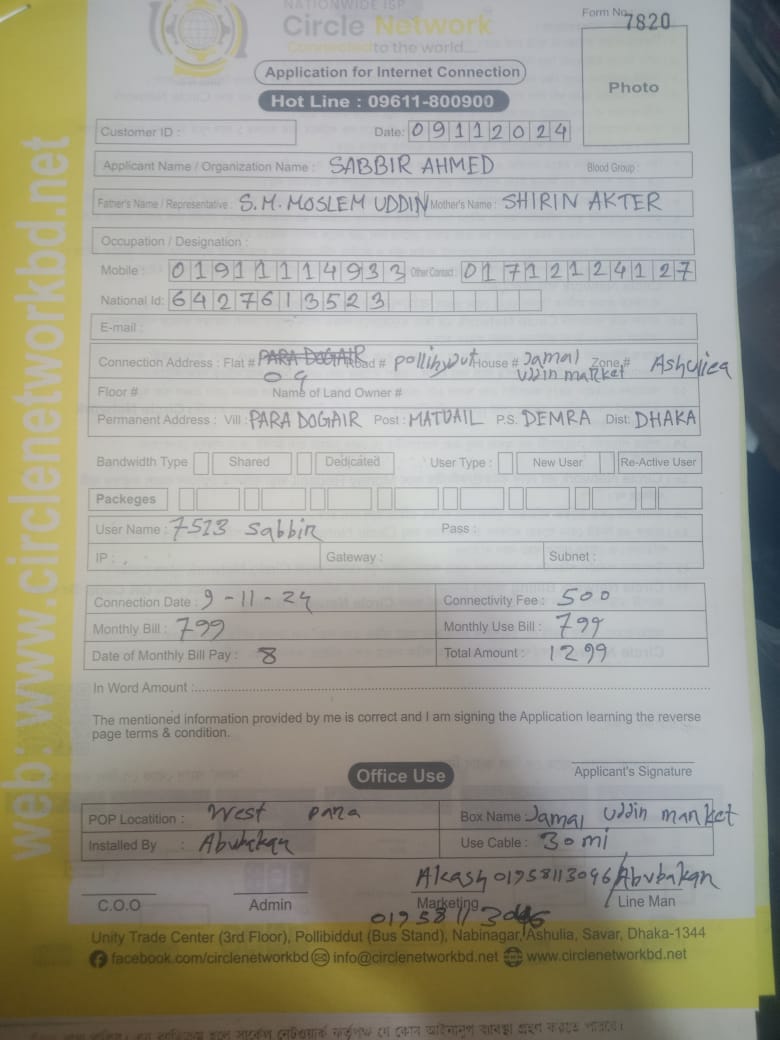 NATIONWIDE ISP
Circle Network
Connected to the world....
Form No. 7820
Photo
Application for Internet Connection
Hot Line : 09611-800900
Customer ID :
Date: 09112024
Applicant Name / Organization Name : SABBIR AHMED Blood Group :
Father's Name / Representative : S.M. MOSLEM UDDIN Mother's Name : SHIRIN AKTER
Occupation / Designation :
Mobile : 01911114933 Other Contact : 01712124127
National Id: 6427613523
E-mail :
Connection Address : Flat # PARA DOGAIR Road # House # Jamal Uddin market Zone # Ashuliea
Floor # 09 Name of Land Owner #
Permanent Address : Vill : PARA DOGAIR Post : MATUAIL P.S. DEMRA Dist: DHAKA
Bandwidth Type Shared Dedicated User Type : New User Re-Active User
Packeges
User Name : 7513 Sabbir Pass :
IP : Gateway : Subnet :
Connection Date : 9-11-24 Connectivity Fee : 500
Monthly Bill : 799 Monthly Use Bill : 799
Date of Monthly Bill Pay : 8 Total Amount : 1299
In Word Amount :
The mentioned information provided by me is correct and I am signing the Application learning the reverse
page terms & condition.
Applicant's Signature
Office Use
POP Locatition : West para Box Name : Jamal Uddin market
Installed By : Abubakar Use Cable : 30 mi
Akash 01958113046 / Abubakar
C.O.O Admin Marketing Line Man
01958113046
Unity Trade Center (3rd Floor), Pollibiddut (Bus Stand), Nabinagar, Ashulia, Savar, Dhaka-1344
facebook.com/circlenetworkbd info@circlenetworkbd.net www.circlenetworkbd.net
web: www.circlenetworkbd.net